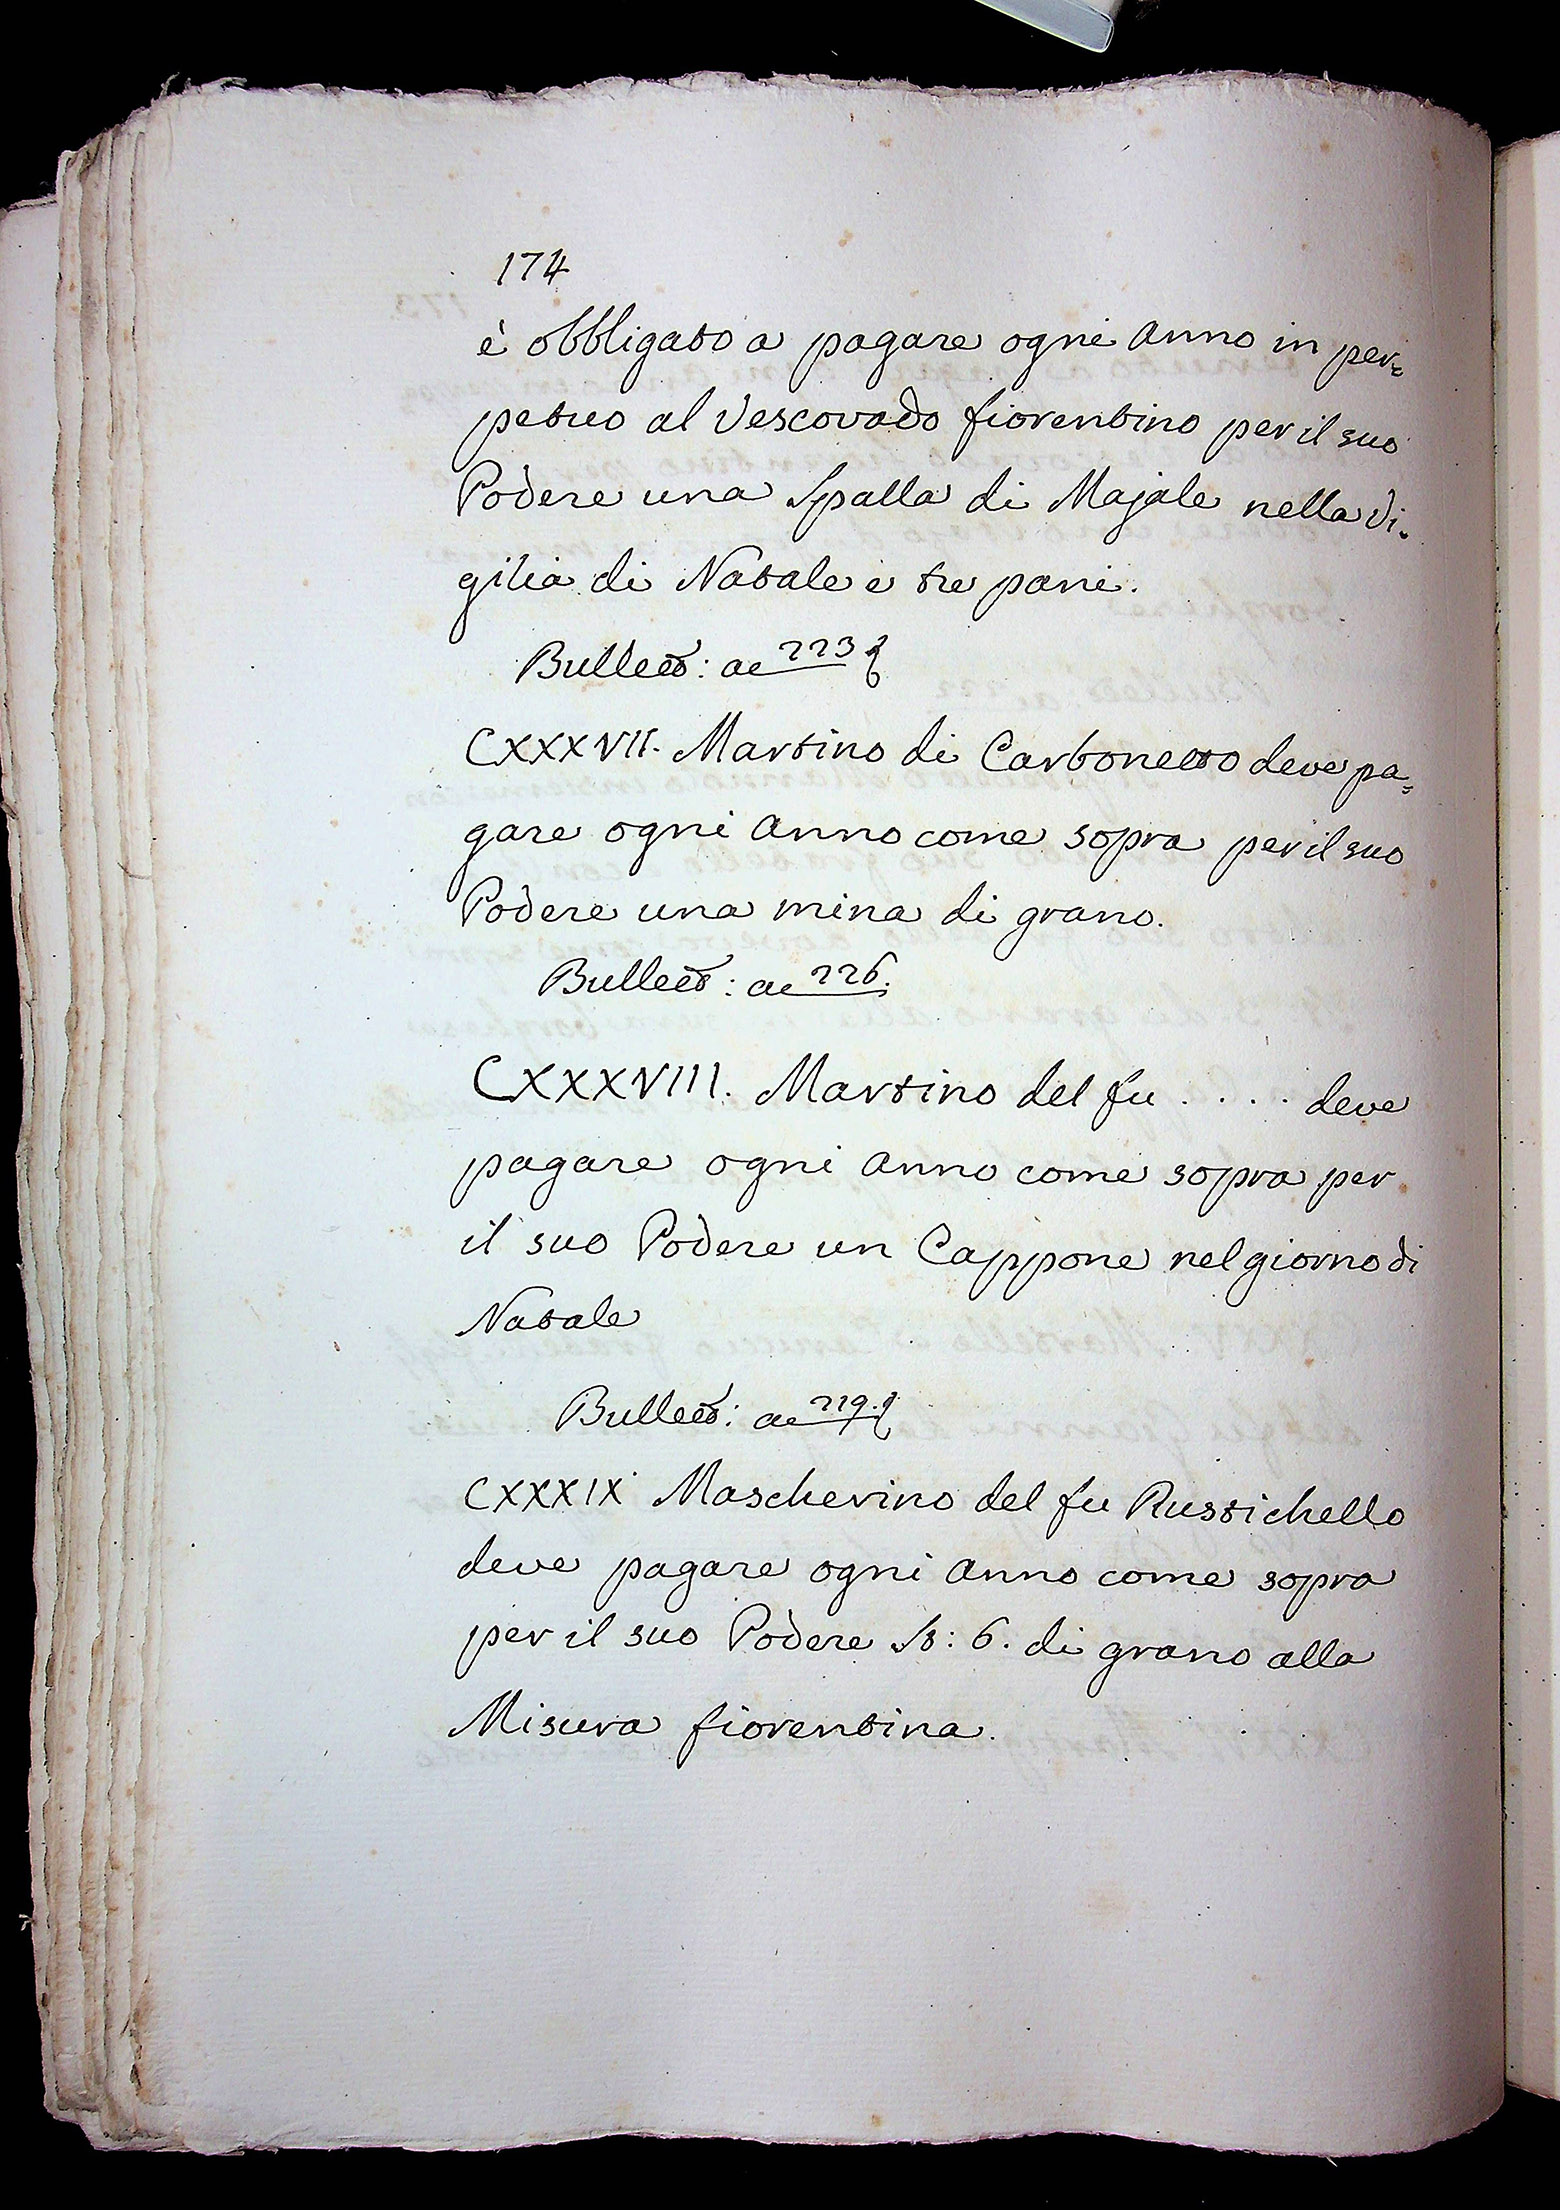 174
è obbligato a pagare ogni anno in per=
petuo al Vescovado fiorentino per il suo
Podere una Spalla di Majale nella Vi=
gilia di Natale e tre pani.
Bullett: a 223
CXXXVII. Martino di Carbonetto deve pa=
gare ogni anno come sopra per il suo
Podere una mina di grano.
Bullett: a 226.
CXXXVIII. Martino del fu . . . . deve
pagare ogni anno come sopra per
il suo Podere un Cappone nel giorno di
Natale
Bullett: a 219.
CXXXIX Mascherino del fu Rustichello
deve pagare ogni anno come sopra
per il suo Podere St: 6. di grano alla
Misura fiorentina.